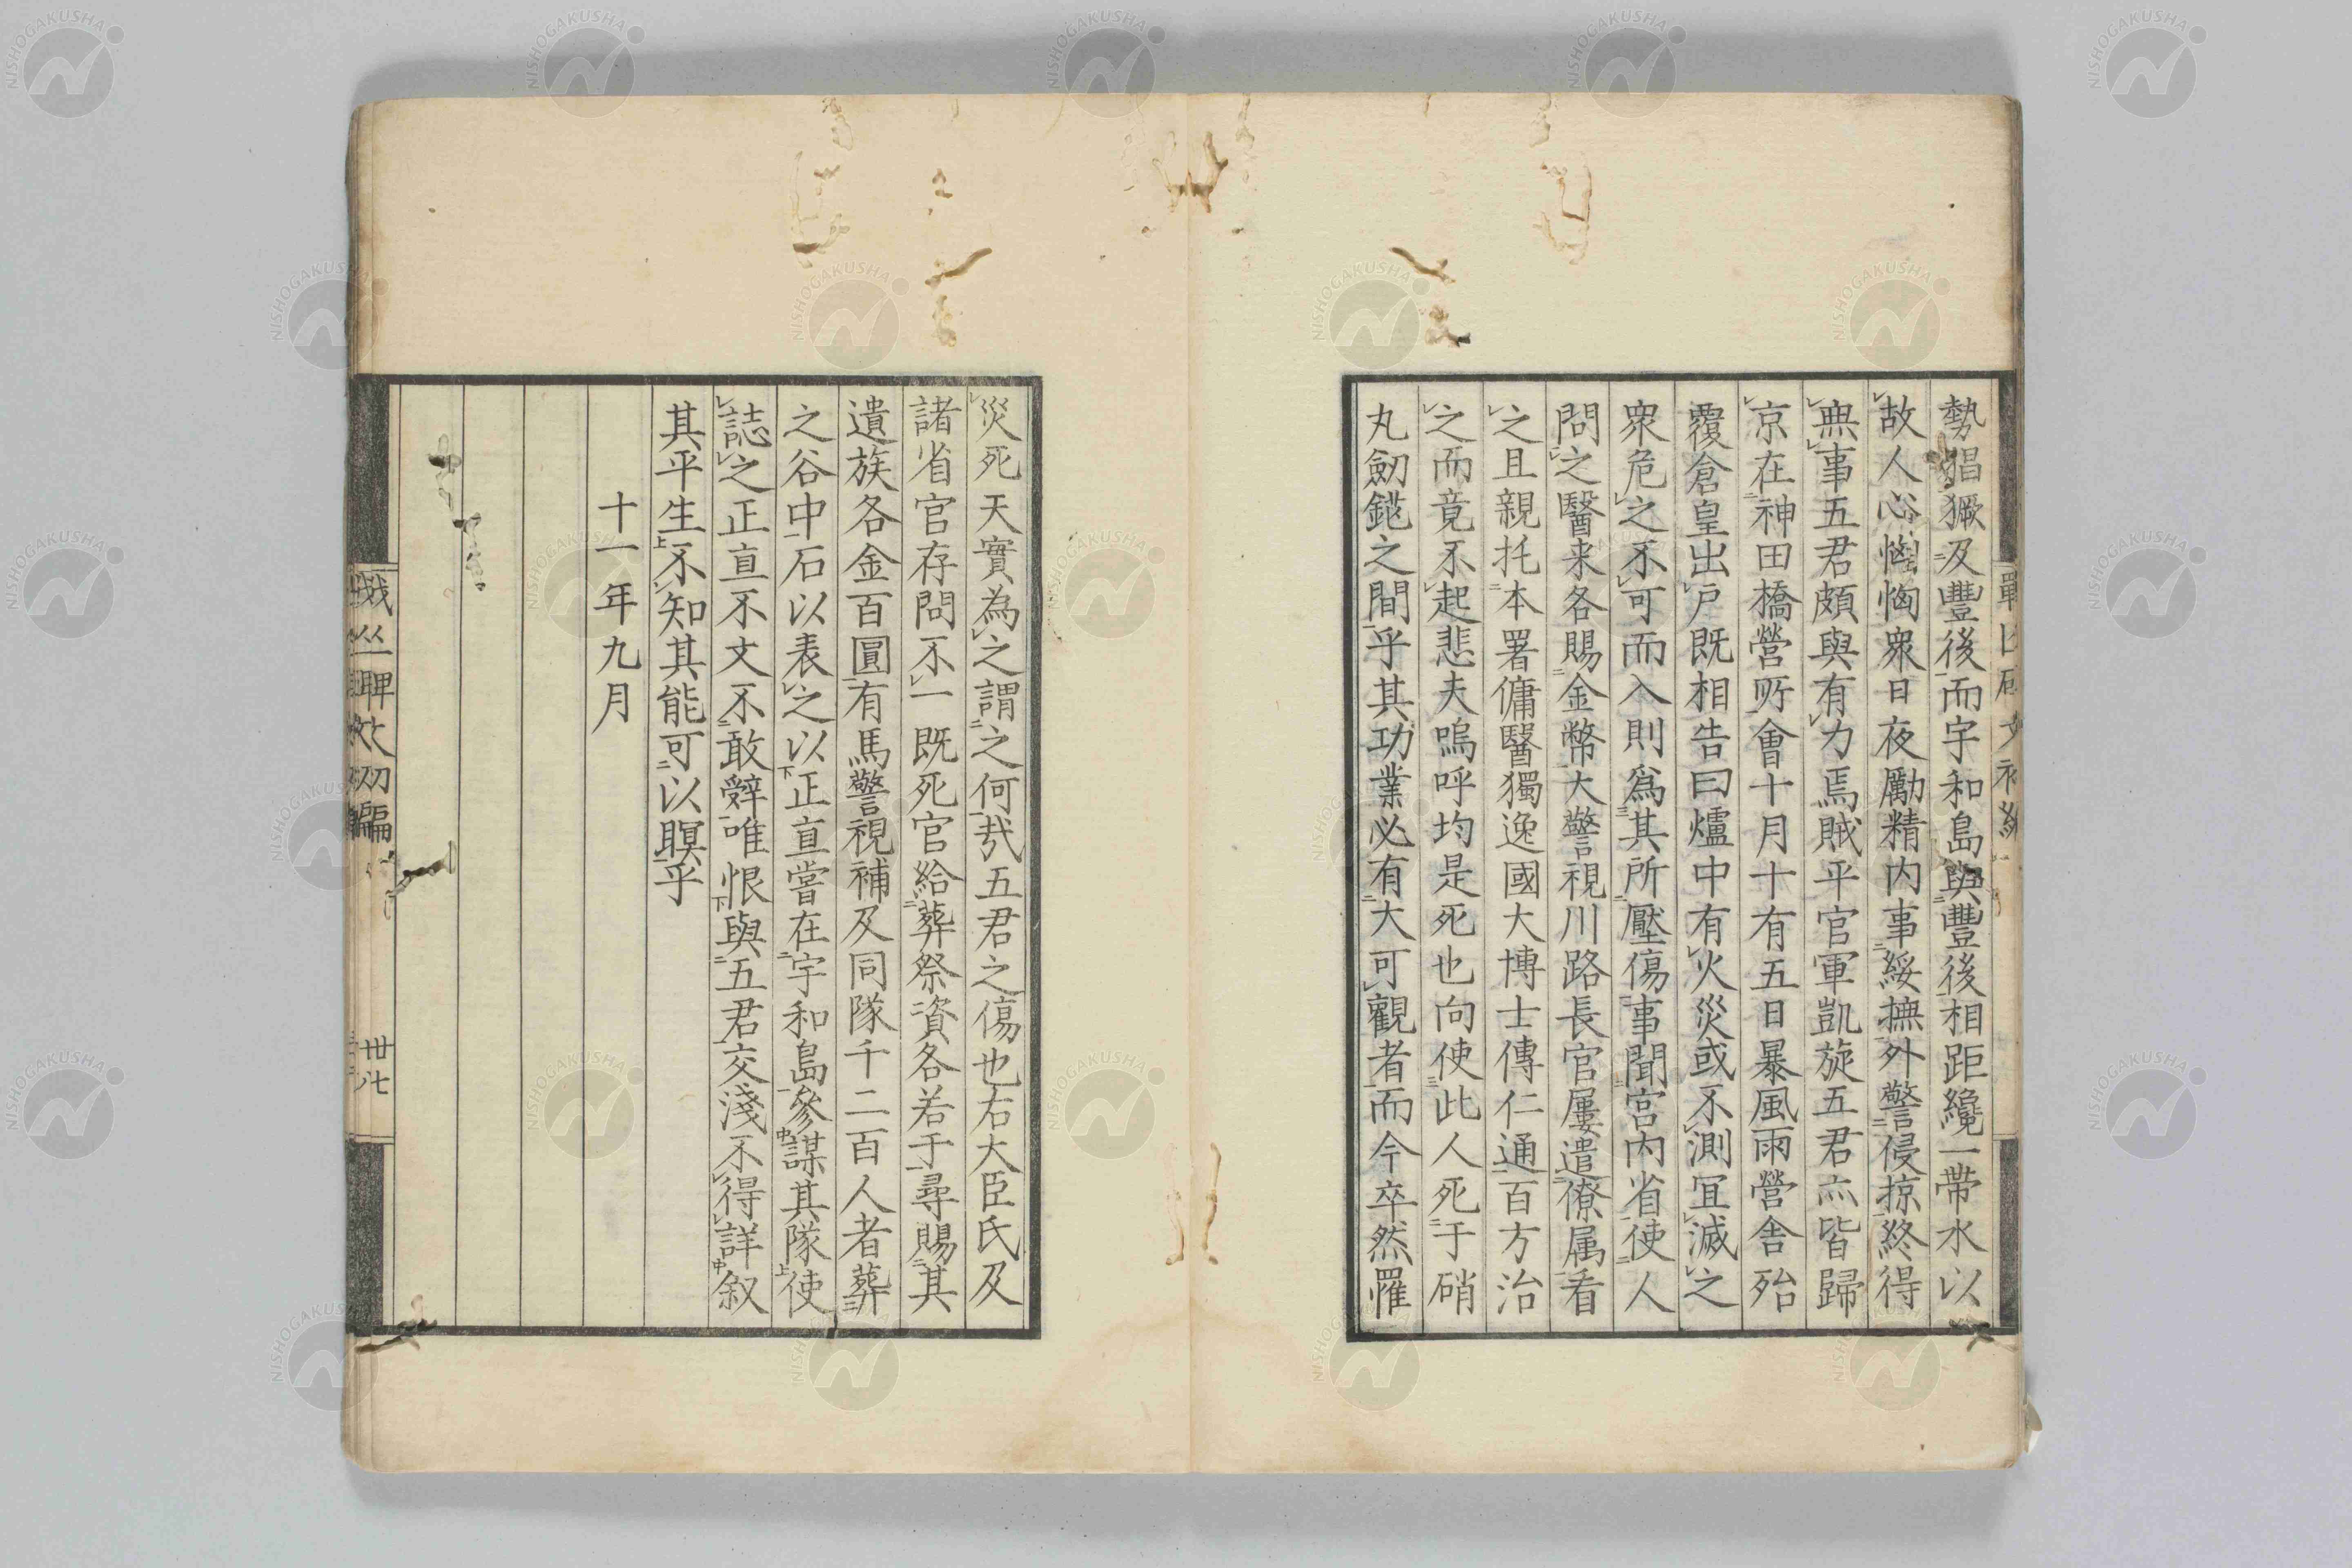 勢猖獗及豐後而宇和島與豐後相距纔一帶水以
故人心恟恟衆日夜勵精内事綏撫外警侵掠終得
無事五君頗與有力焉賊平官軍凱旋五君亦皆歸
京在神田橋營所會十月十有五日暴風雨營舎殆
覆倉皇出戸既相告曰爐中有火災或不測冝滅之
衆危之不可而入則爲其所壓傷事聞宮内省使人
問之醫来各賜金幣大警視川路長官屢遣僚属看
之且親托本署傭醫獨逸國大博士傳仁通百方治
之而竟不起悲夫嗚呼均是死也向使此人死于硝
丸劒鋩之間乎其功業必有大可觀者而今卒然罹
災死天實為之謂之何哉五君之傷也右大臣氏及
諸省官存問不一既死官給葬祭資各若于尋賜其
遺族各金百圓有馬警視補及同隊千二百人者葬
之谷中石以表之以正直嘗在宇和島參謀其隊使
誌之正直不文不敢辭唯恨與五君交淺不得詳叙
其平生不知其能可以瞑乎
十一年九月
碑文初編
卅七
NISHOGAKUSHA